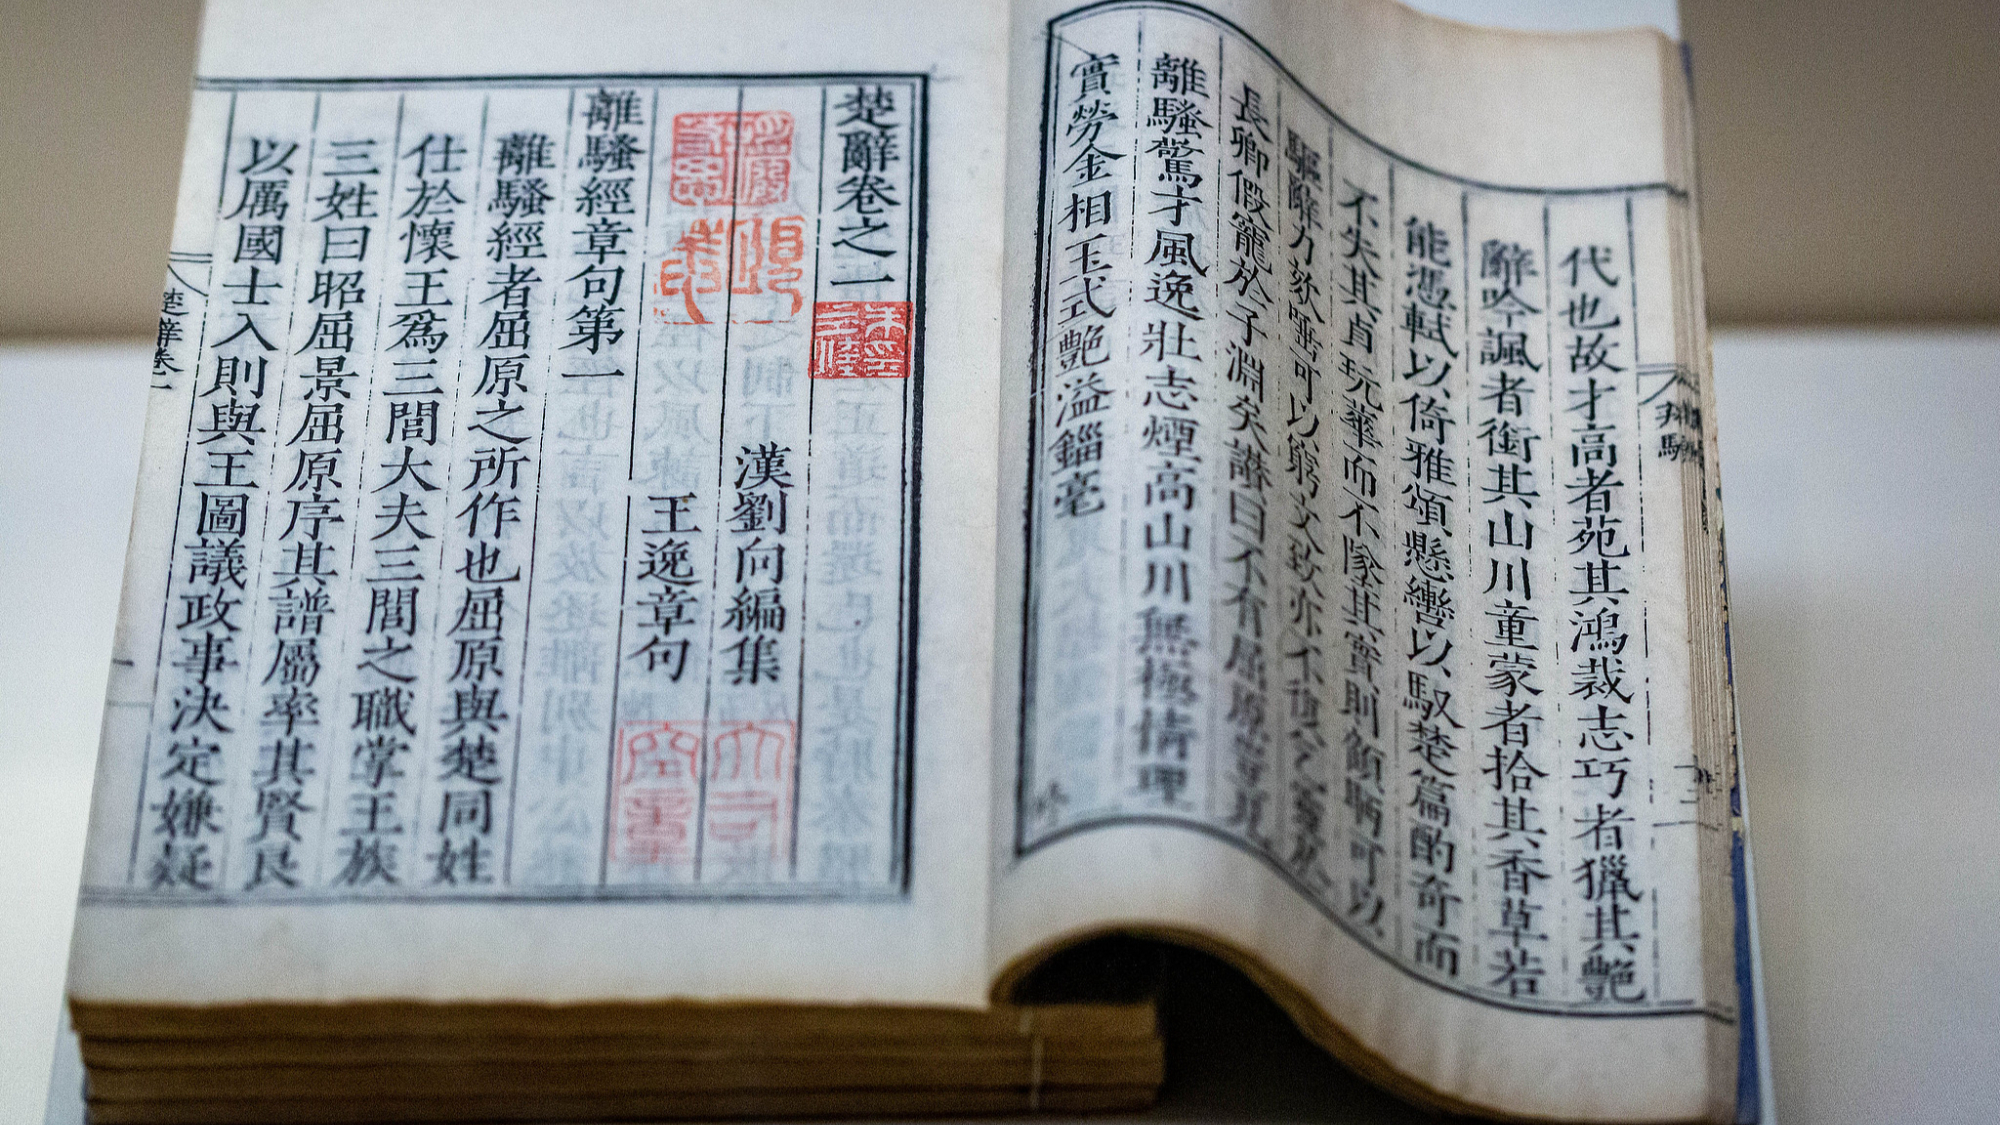 代也故才高者苑其鴻裁志巧者獵其艷
辭吟諷者銜其山川童蒙者拾其香草若
能憑軾以倚雅頌懸轡以馭楚篇酌奇而
不失其貞玩華而不墜其實則顧盼可以
驅辭力欬唾可以窮文致亦不復乞靈於
長卿假寵於子淵矣讃曰不有屈原豈見
離騷驚才風逸壯志煙高山川無極情理
實勞金相玉式艷溢錙毫
楚辭卷之一
漢劉向編集
王逸章句
離騷經章句第一
離騷經者屈原之所作也屈原與楚同姓
仕於懷王爲三閭大夫三閭之職掌王族
三姓曰昭屈景屈原序其譜屬率其賢良
以厲國士入則與王圖議政事決定嫌疑
楚辭卷一